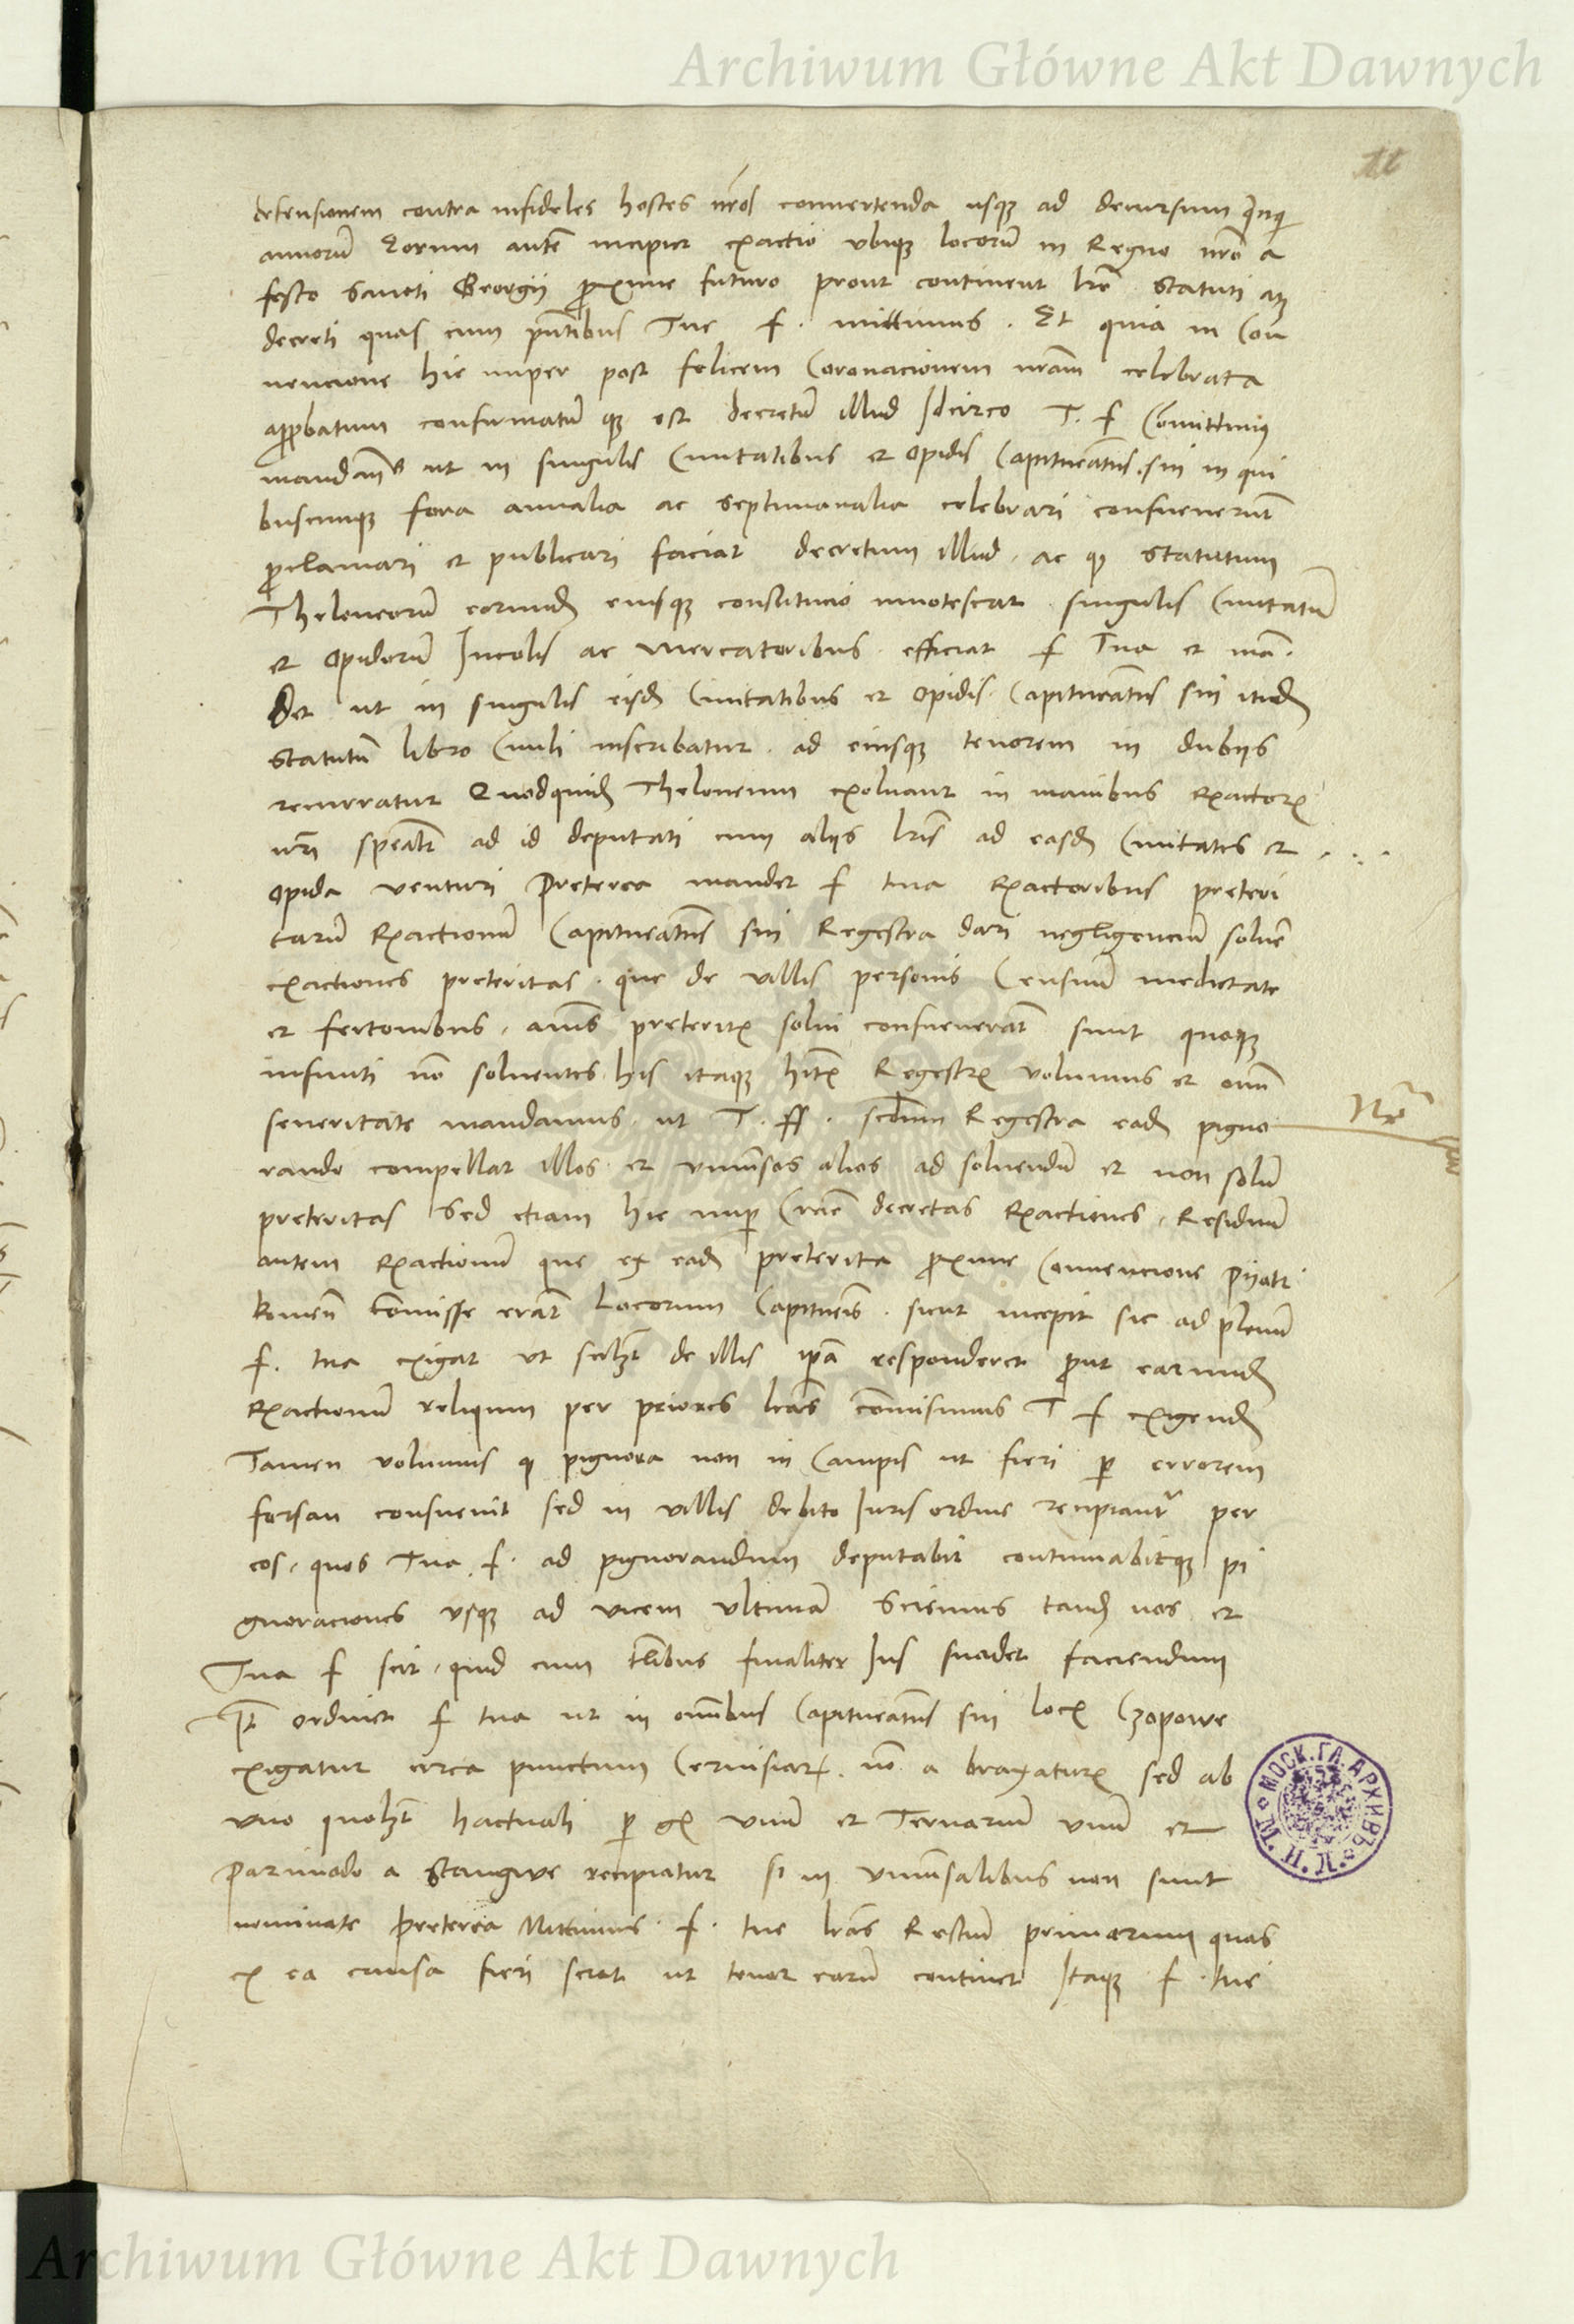 Archiwum Główne Akt Dawnych
11
defensionem contra infideles hostes nros convertenda usq ad decursum qinq
annorū Eorum autē incipiet exactio ubiq locorū in Regno nrō a
festo Sancti Georgij proxime futuro prout continent lrē Statuti atq
decreti quas cum pntibus Tue f. mittimus. Et quia in Con
vencione hic nuper post felicem Coronacionem nram celebrata
approbatum confirmatū q est decretū illud Idcirco T. f Comittimus
mandams ut in singulis Civitatibus et opidis Capitneatus sui in qui
buscunq fora annalia ac septimanalia celebrari consueverunt
proclamari et publicari faciat decretum illud ac q Statutum
Theloneorū eorund eiusq constitucio innotescat singulis Civitatū
et opidorū Incolis ac Mercatoribus efficiat f Tua et man
det ut in singulis eisd Civitatibus et opidis Capitneatus sui itid
statutū libro Civili inscribatur ad eiusq tenorem in dubijs
recurratur Quodquid Theloneum exolvant in manibus Exactor
nri spealr ad id deputati cum alijs lris ad easd Civitates et
opida venturi Preterea mandet f tua Exactoribus preteri
tarū Exactionū Capitneatus sui Regestra dari negligenciū solvē
exactiones preteritas que de villis personis Censuum medietate
et fertonibus annis preteritis solvi consueverāt sunt quoq
infiniti nō solventes his itaq hitis Regestris volumus et omni
severitate mandamus ut T. ff. scdum Regestra ead pigno
rando compellat illos et universos alios ad solvendū et non solū
preteritas Sed etiam hic nup Cracie decretas Exactiones. Residuū
autem Exactionū que ex ead preterita proxime Convencione Pijotr
kovien comisse erāt Locorum Capitneis sicut incepit sic ad plenū
f. tua exigat ut scilzt de illis ipa responderet prout earund
Exactionū reliquum per priores lras comisimus T f exigend
Tamen volumus q pignora non in Campis ut fieri p errorem
forsan consuevit sed in villis debito Iuris ordine recipiantr per
eos. quos Tua f. ad pignorandum deputabit continuabitq pi
gnoraciones usq ad vicem ultimā Sciemus tand nos et
Tua f scit quid cum tlibus finaliter Ius suadet faciendum
Itē ordinet f tua ut in omibus Capitneatus sui locis Czopowe
exigatur circa punctum Cervisiar nō a braxaturis sed ab
uno quolzt hactuali p gr unū et Ternarium unū et
Parimodo a Stangwe recipiatur si in universalibus non sunt
nominate Preterea Mittimus f. tue lras Restium primarum quas
ex ea causa fieri sciat ut tenor earū continet Itaq f tue
МОСК. ГЛ. АРХИВЪ
Archiwum Główne Akt Dawnych